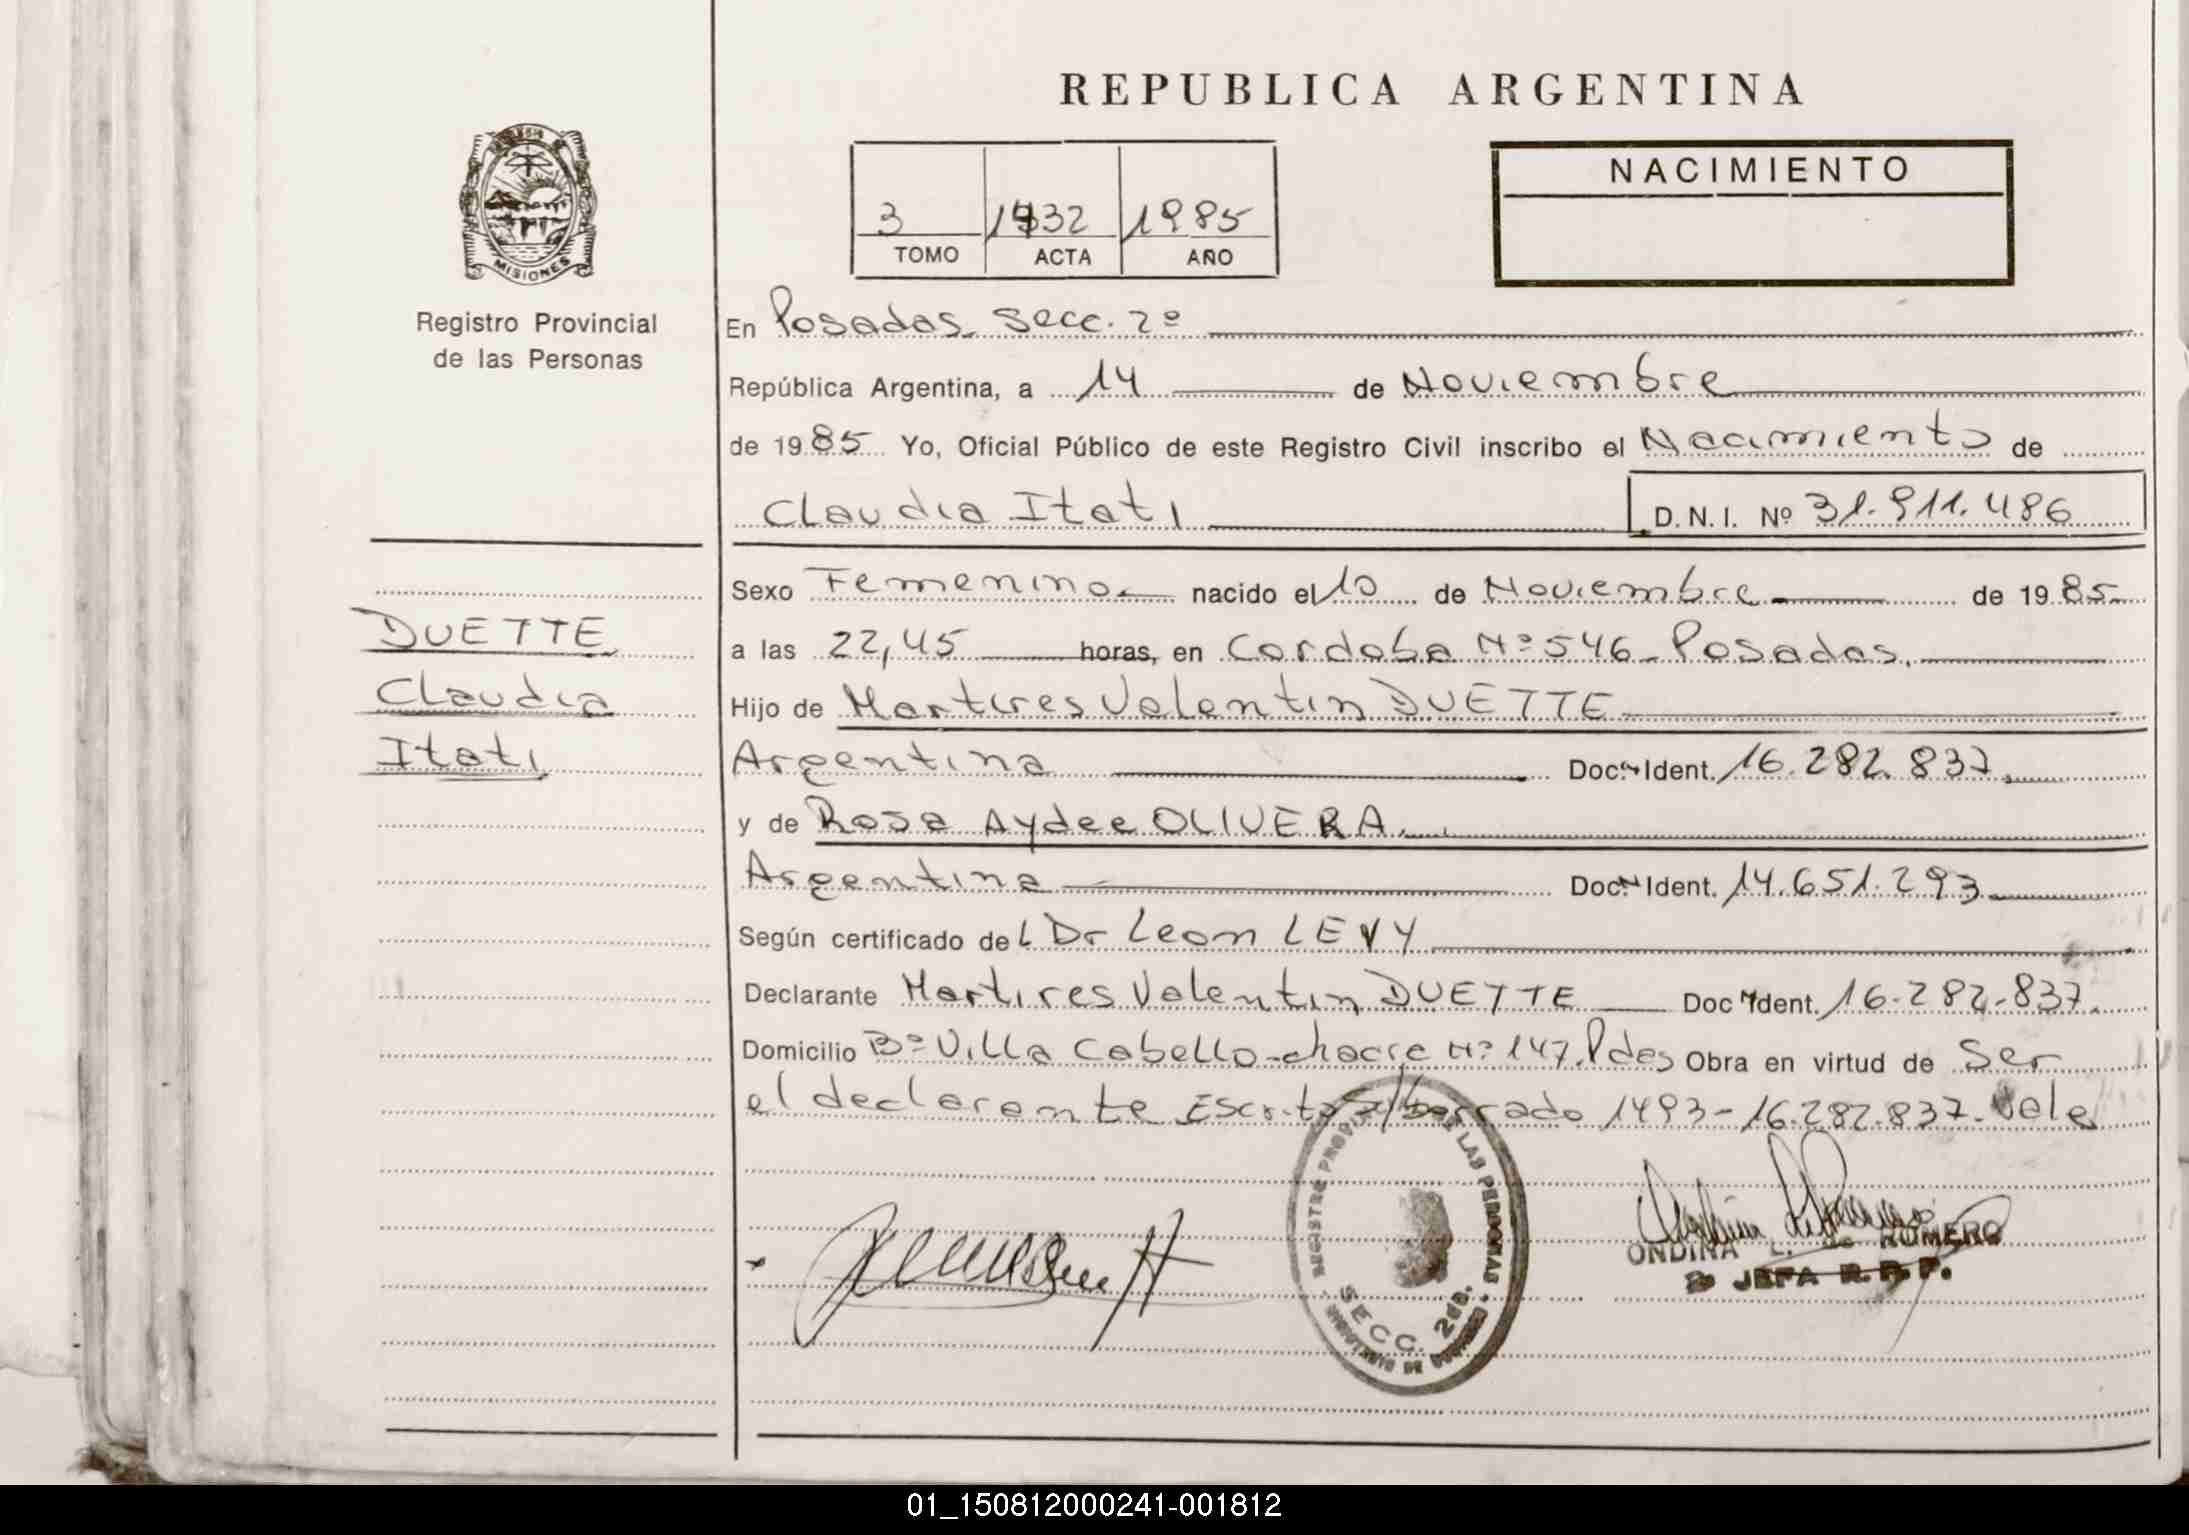 REPUBLICA ARGENTINA
MISIONES
Registro Provincial
de las Personas
3 1985
TOMO ACTA AÑO
NACIMIENTO
En Posadas. Secc. 2º
República Argentina, a 14 de Noviembre
de 1985. Yo, Oficial Público de este Registro Civil inscribo el Nacimiento de
Claudia Itati
D.N.I. Nº 31.911.486
DUETTE
Claudia
Itati
Sexo Femenino nacido el 10 de Noviembre de 1985
a las 22,45 horas, en Cordoba Nº 546 - Posadas.
Hijo de Martires Valentin DUETTE
Argentina Doc. Ident. 16.282.837.
y de Rosa Aydee OLIVERA.
Argentina Doc. Ident. 14.651.293
Según certificado del Dr Leon LEVY
Declarante Martires Valentin DUETTE Doc Ident. 16.282.837.
Domicilio Bº Villa Cabello - chacra Nº 147. Pdas Obra en virtud de Ser
el declarante Escrito S/borrado 1493 - 16.282.837. Vale
REGISTRO DE LAS PERSONAS
SECC. 2da.
ONDINA L. de ROMERO
JEFA R. P. P.
01_150812000241-001812